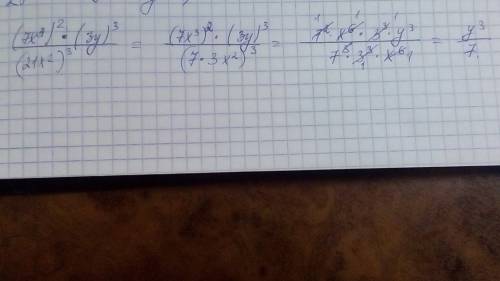 (7x³)² • (3y)³ / (21x²)³ = (7x³)² • (3y)³ / (7 • 3x²)³ = 7² • x⁶ • 3³ • y³ / 7³ • 3³ • x⁶ = y³ / 7